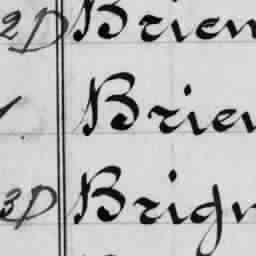 2D Brien
Brien
3D Brign